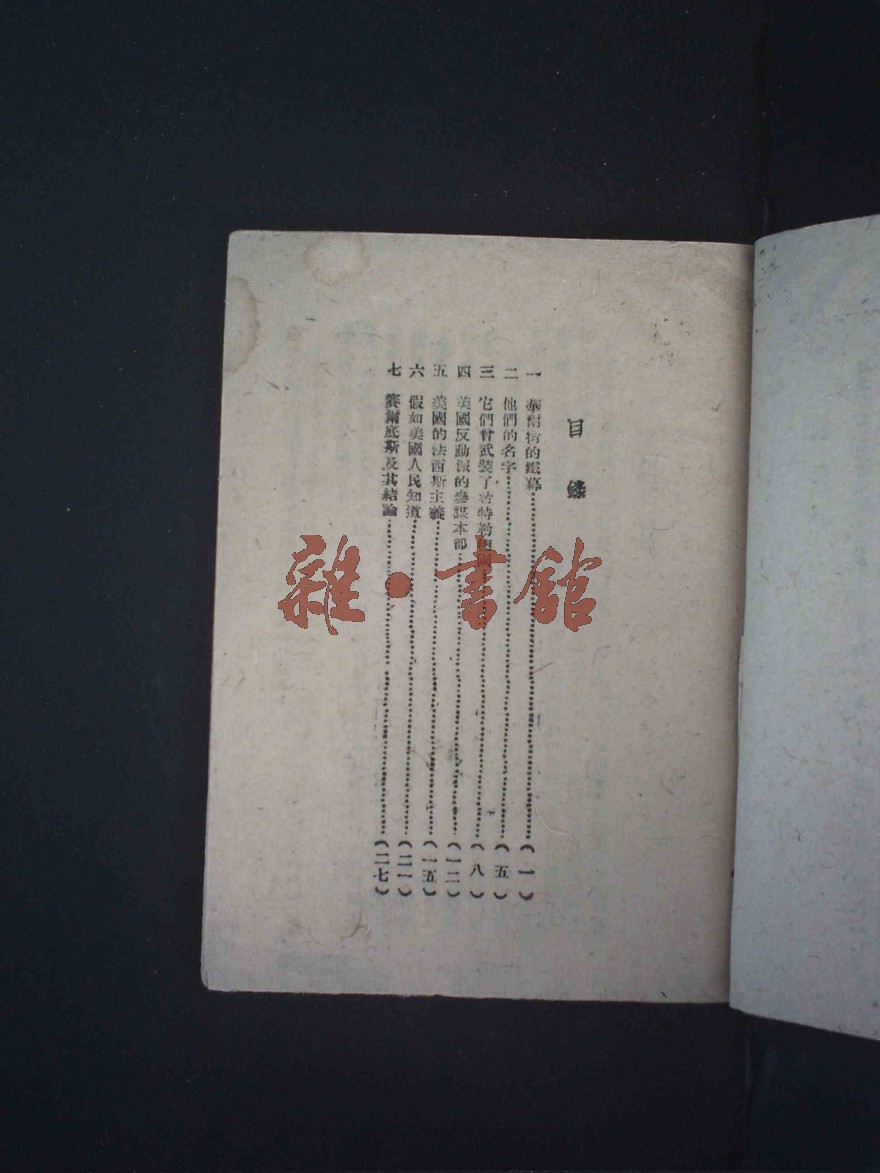 目錄
一 華爾街的鐵幕（一）
二 他們的名字（五）
三 它們曾武裝了希特勒（八）
四 美國反動派的參謀本部（一二）
五 美國的法西斯主義（一五）
六 假如美國人民知道（二一）
七 賽爾底斯及其結論（二七）
雜·書館